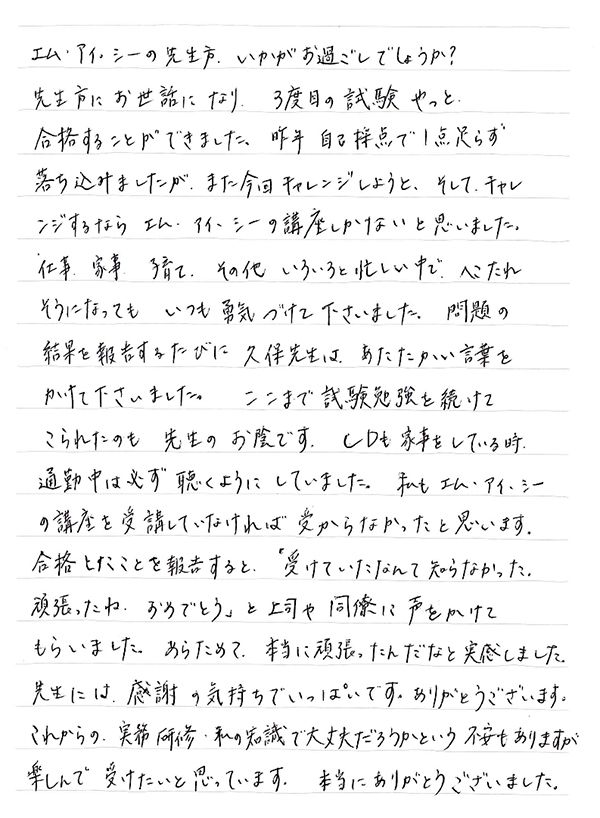 エム・アイ・シーの先生方、いかがお過ごしでしょうか?
先生方にお世話になり、3度目の試験やっと
合格することができました。昨年 自己採点で1点足らず
落ち込みましたが、また今回チャレンジしようと、そして、チャレ
ンジするなら エム・アイ・シーの講座しかないと思いました。
仕事、家事、子育て、その他 いろいろと忙しい中で、へこたれ
そうになっても いつも勇気づけて下さいました。問題の
結果を報告するたびに 久保先生は、あたたかい言葉を
かけて下さいました。 ここまで試験勉強を続けて
こられたのも 先生のお陰です。CDも家事をしている時、
通勤中は必ず聴くようにしていました。私もエム・アイ・シー
の講座を受講していなければ受からなかったと思います。
合格したことを報告すると、「受けていたなんて知らなかった。
頑張ったね。おめでとう」と上司や同僚に声をかけて
もらいました。あらためて、本当に頑張ったんだなと実感しました。
先生には、感謝の気持ちでいっぱいです。ありがとうございます。
これからの、実務研修・私の知識で大丈夫だろうかという不安もありますが
楽しんで受けたいと思っています。 本当にありがとうございました。